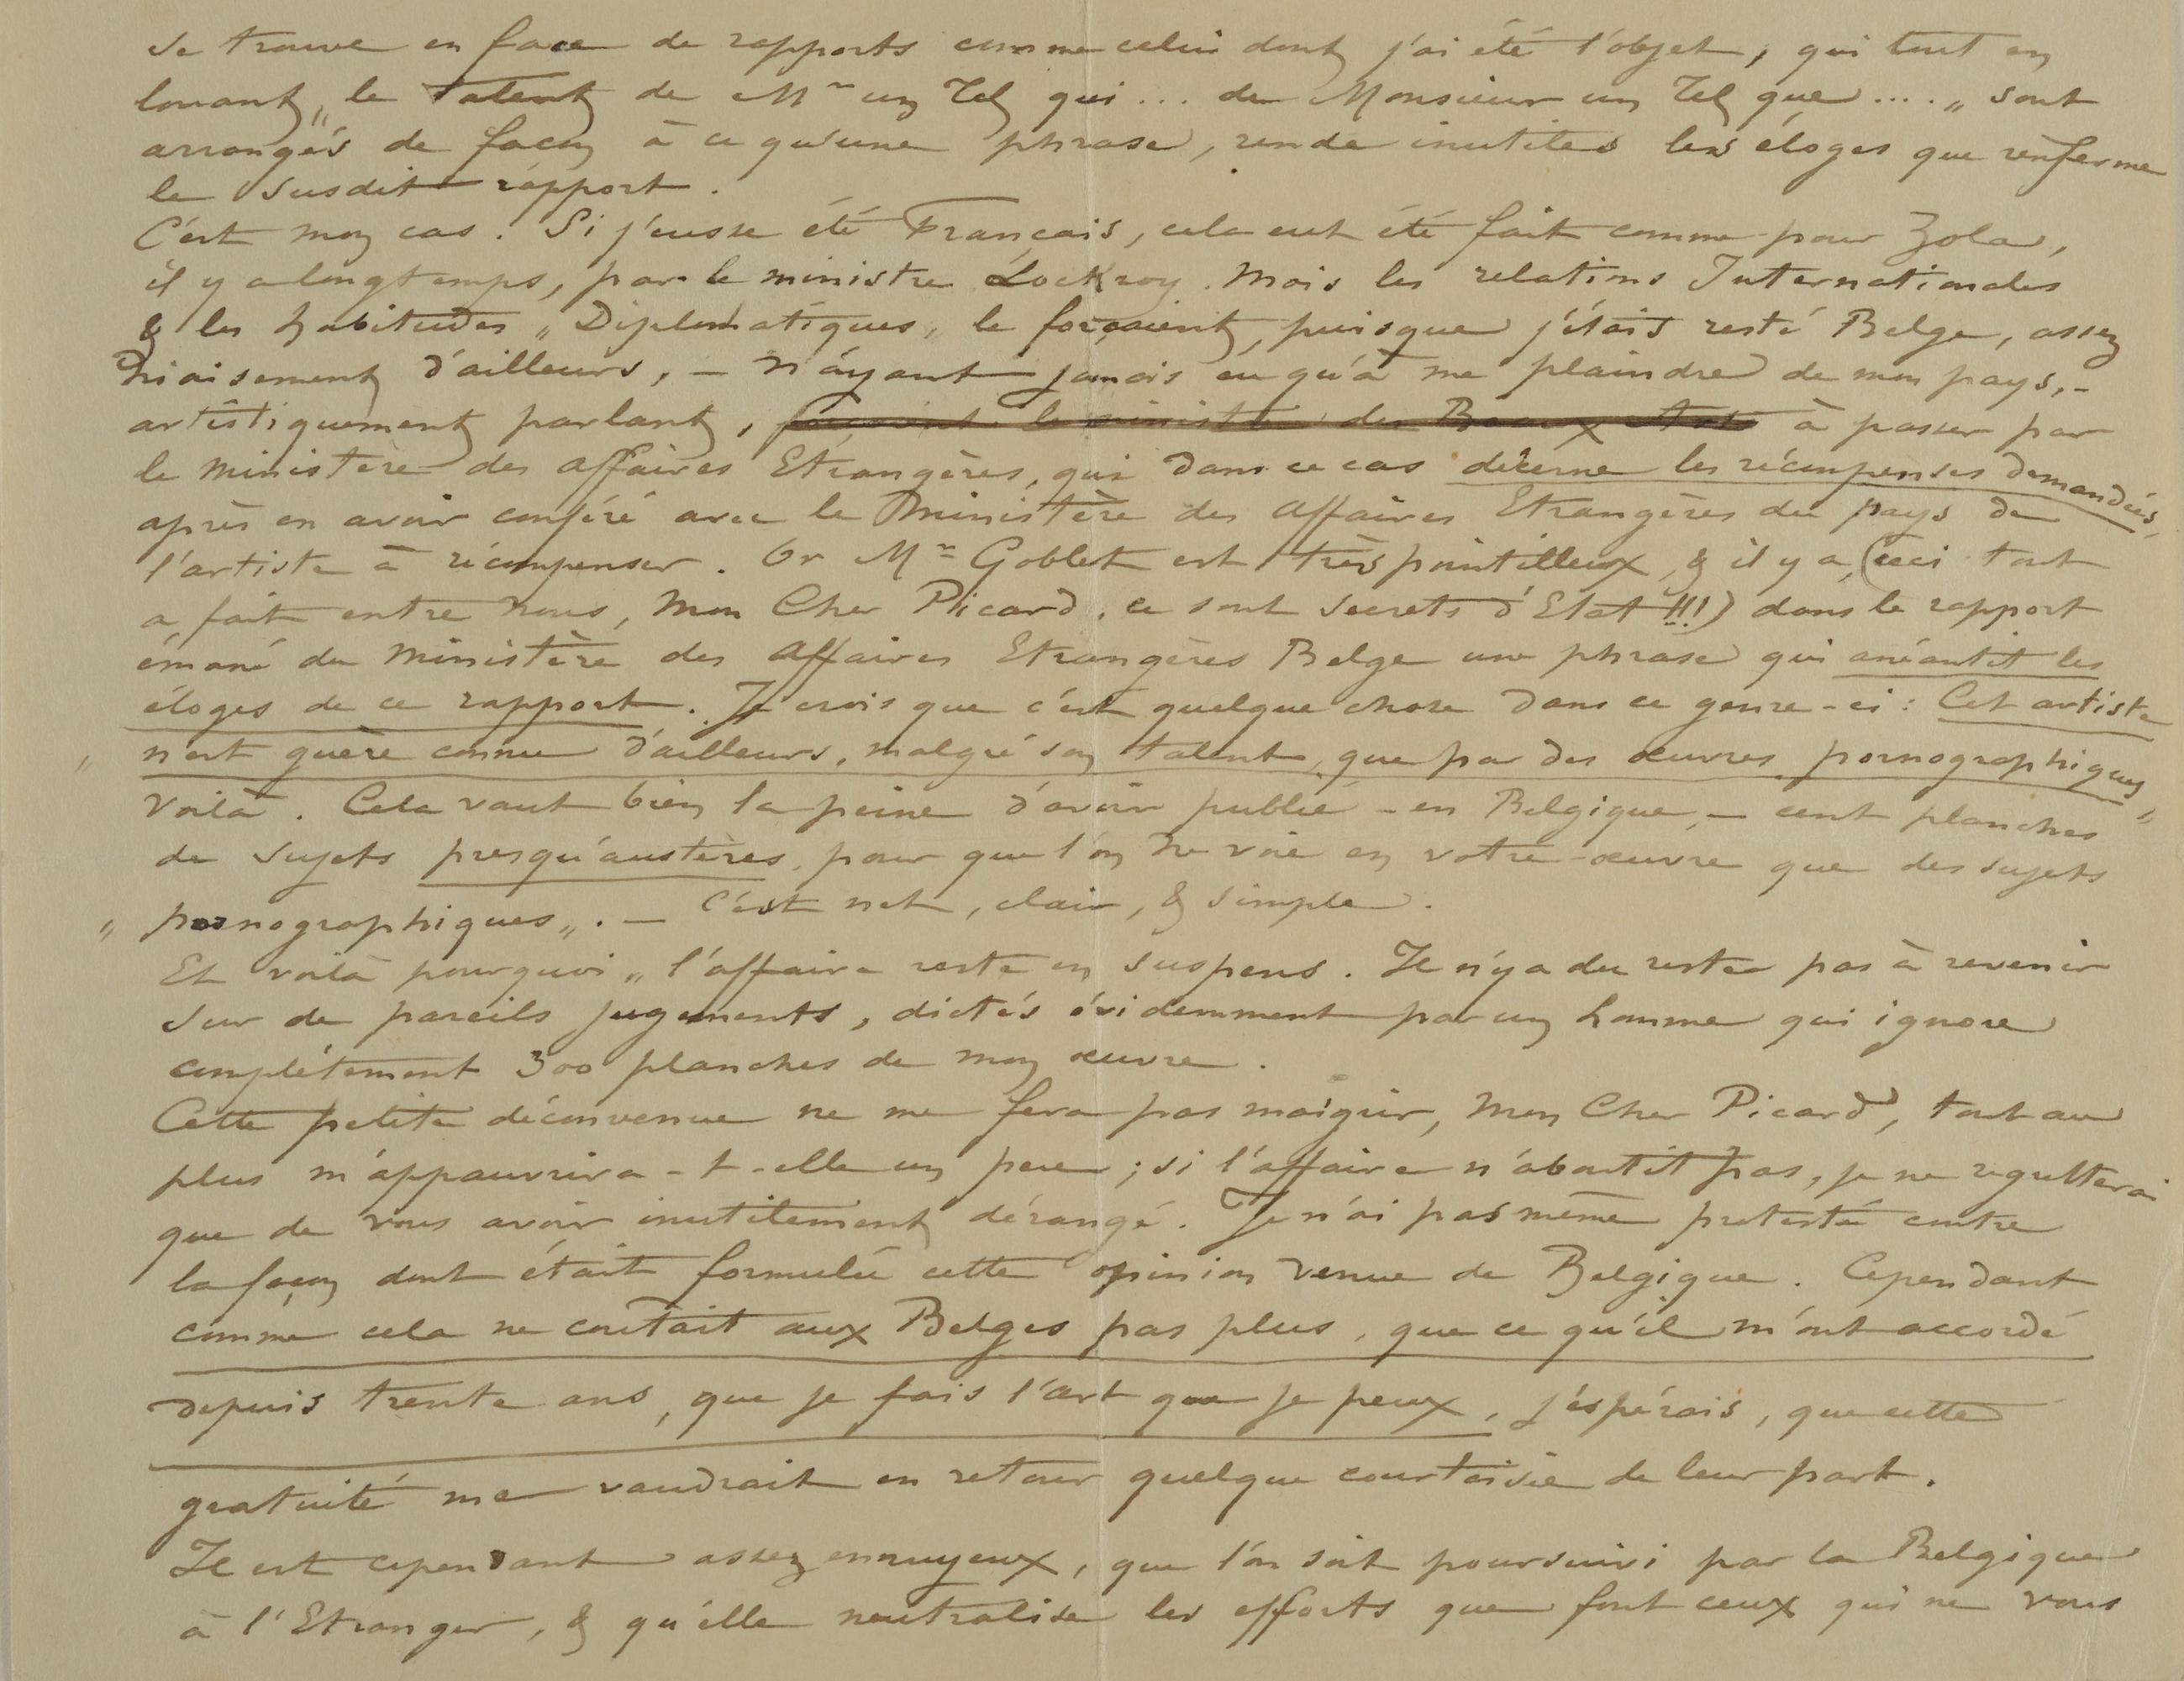 se trouve en face de rapports comme celui dont j'ai été l'objet, qui tout en
louant „ le talent de Mr un Tel qui ... de Monsieur un Tel que .... „ sont
arrangés de façon à ce qu'une phrase, rende inutiles les éloges que renferme
le susdit rapport.
C'est mon cas. Si j'eusse été Français, cela eut été fait comme pour Zola,
il y a longtemps, par le ministre Lockroy. Mais les relations Internationales
& les habitudes „ Diplomatiques „ le forçaient, puisque j'étais resté Belge, assez
niaisement d'ailleurs, – n'ayant jamais eu qu'à me plaindre de mon pays, –
artistiquement parlant, forçaient le ministre des Beaux Arts à passer par
le Ministère des Affaires Etrangères, qui dans ce cas décerne les récompenses demandées,
après en avoir conféré avec le Ministère des Affaires Etrangères du pays de
l'artiste à récompenser. Or Mr Goblet est très pointilleux, & il y a, (ceci tout
a fait entre nous, Mon Cher Picard, ce sont secrets d'Etat !!!) dans le rapport
émané du Ministère des Affaires Etrangères Belge une phrase qui anéantit les
éloges de ce rapport. Je crois que c'est quelque chose dans ce genre-ci : Cet artiste
„ n'est guère connu d'ailleurs, malgré son talent, que par des œuvres pornographiques „
Voilà. Cela vaut bien la peine d'avoir publié – en Belgique, – cent planches
de sujets presqu'austères, pour que l'on ne voie en votre œuvre que des sujets
„ pornographiques „. – C'est net, clair, & simple.
Et voilà pourquoi „ l'affaire reste en suspens. Il n'y a du reste pas à revenir
sur de pareils jugements, dictés évidemment par un homme qui ignore
complétement 300 planches de mon œuvre.
Cette petite déconvenue ne me fera pas maigrir, Mon Cher Picard, tout au
plus m'appauvrira-t-elle un peu ; si l'affaire n'aboutit pas, je ne regretterai
que de vous avoir inutilement dérangé. Je n'ai pas même protesté contre
la façon dont était formulée cette opinion venue de Belgique. Cependant
comme cela ne coutait aux Belges pas plus, que ce qu'il m'ont accordé
depuis trente ans, que je fais l'art que je peux, j'éspérais, que cette
gratuité me vaudrait en retour quelque courtoisie de leur part.
Il est cependant assez ennuyeux, que l'on soit poursuivi par la Belgique
à l'Etranger, & qu'elle neutralise les efforts que font ceux qui ne vous